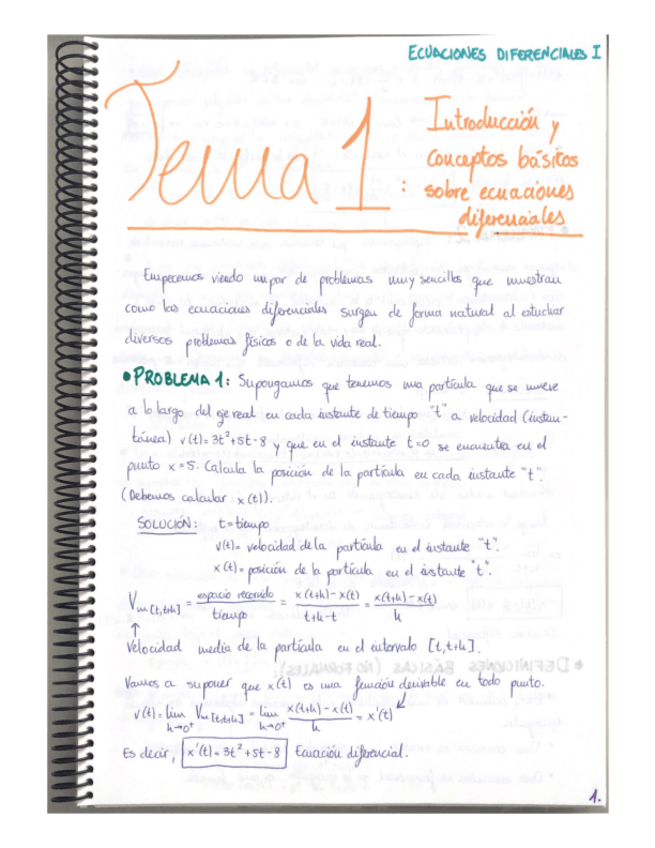 ECUACIONES DIFERENCIALES I
Tema 1:
Introducción y
conceptos básicos
sobre ecuaciones
diferenciales
Empecemos viendo un par de problemas muy sencillos que muestran
como las ecuaciones diferenciales surgen de forma natural al estudiar
diversos problemas físicos o de la vida real.
• PROBLEMA 1: Supongamos que tenemos una partícula que se mueve
a lo largo del eje real en cada instante de tiempo "t" a velocidad (instan-
tánea) v(t)=3t²+5t-8 y que en el instante t=0 se encuentra en el
punto x=5. Calcula la posición de la partícula en cada instante "t".
(Debemos calcular x(t)).
SOLUCIÓN: t=tiempo
v(t)= velocidad de la partícula en el instante "t".
x(t)= posición de la partícula en el instante "t".
Vm[t,t+h] = espacio recorrido / tiempo = x(t+h)-x(t) / t+h-t = x(t+h)-x(t) / h
↑
Velocidad media de la partícula en el intervalo [t,t+h].
Vamos a suponer que x(t) es una función derivable en todo punto.
v(t)= lim h→0⁺ Vm[t,t+h] = lim h→0⁺ x(t+h)-x(t) / h = x'(t)
Es decir, x'(t)=3t²+5t-8 Ecuación diferencial.
1.